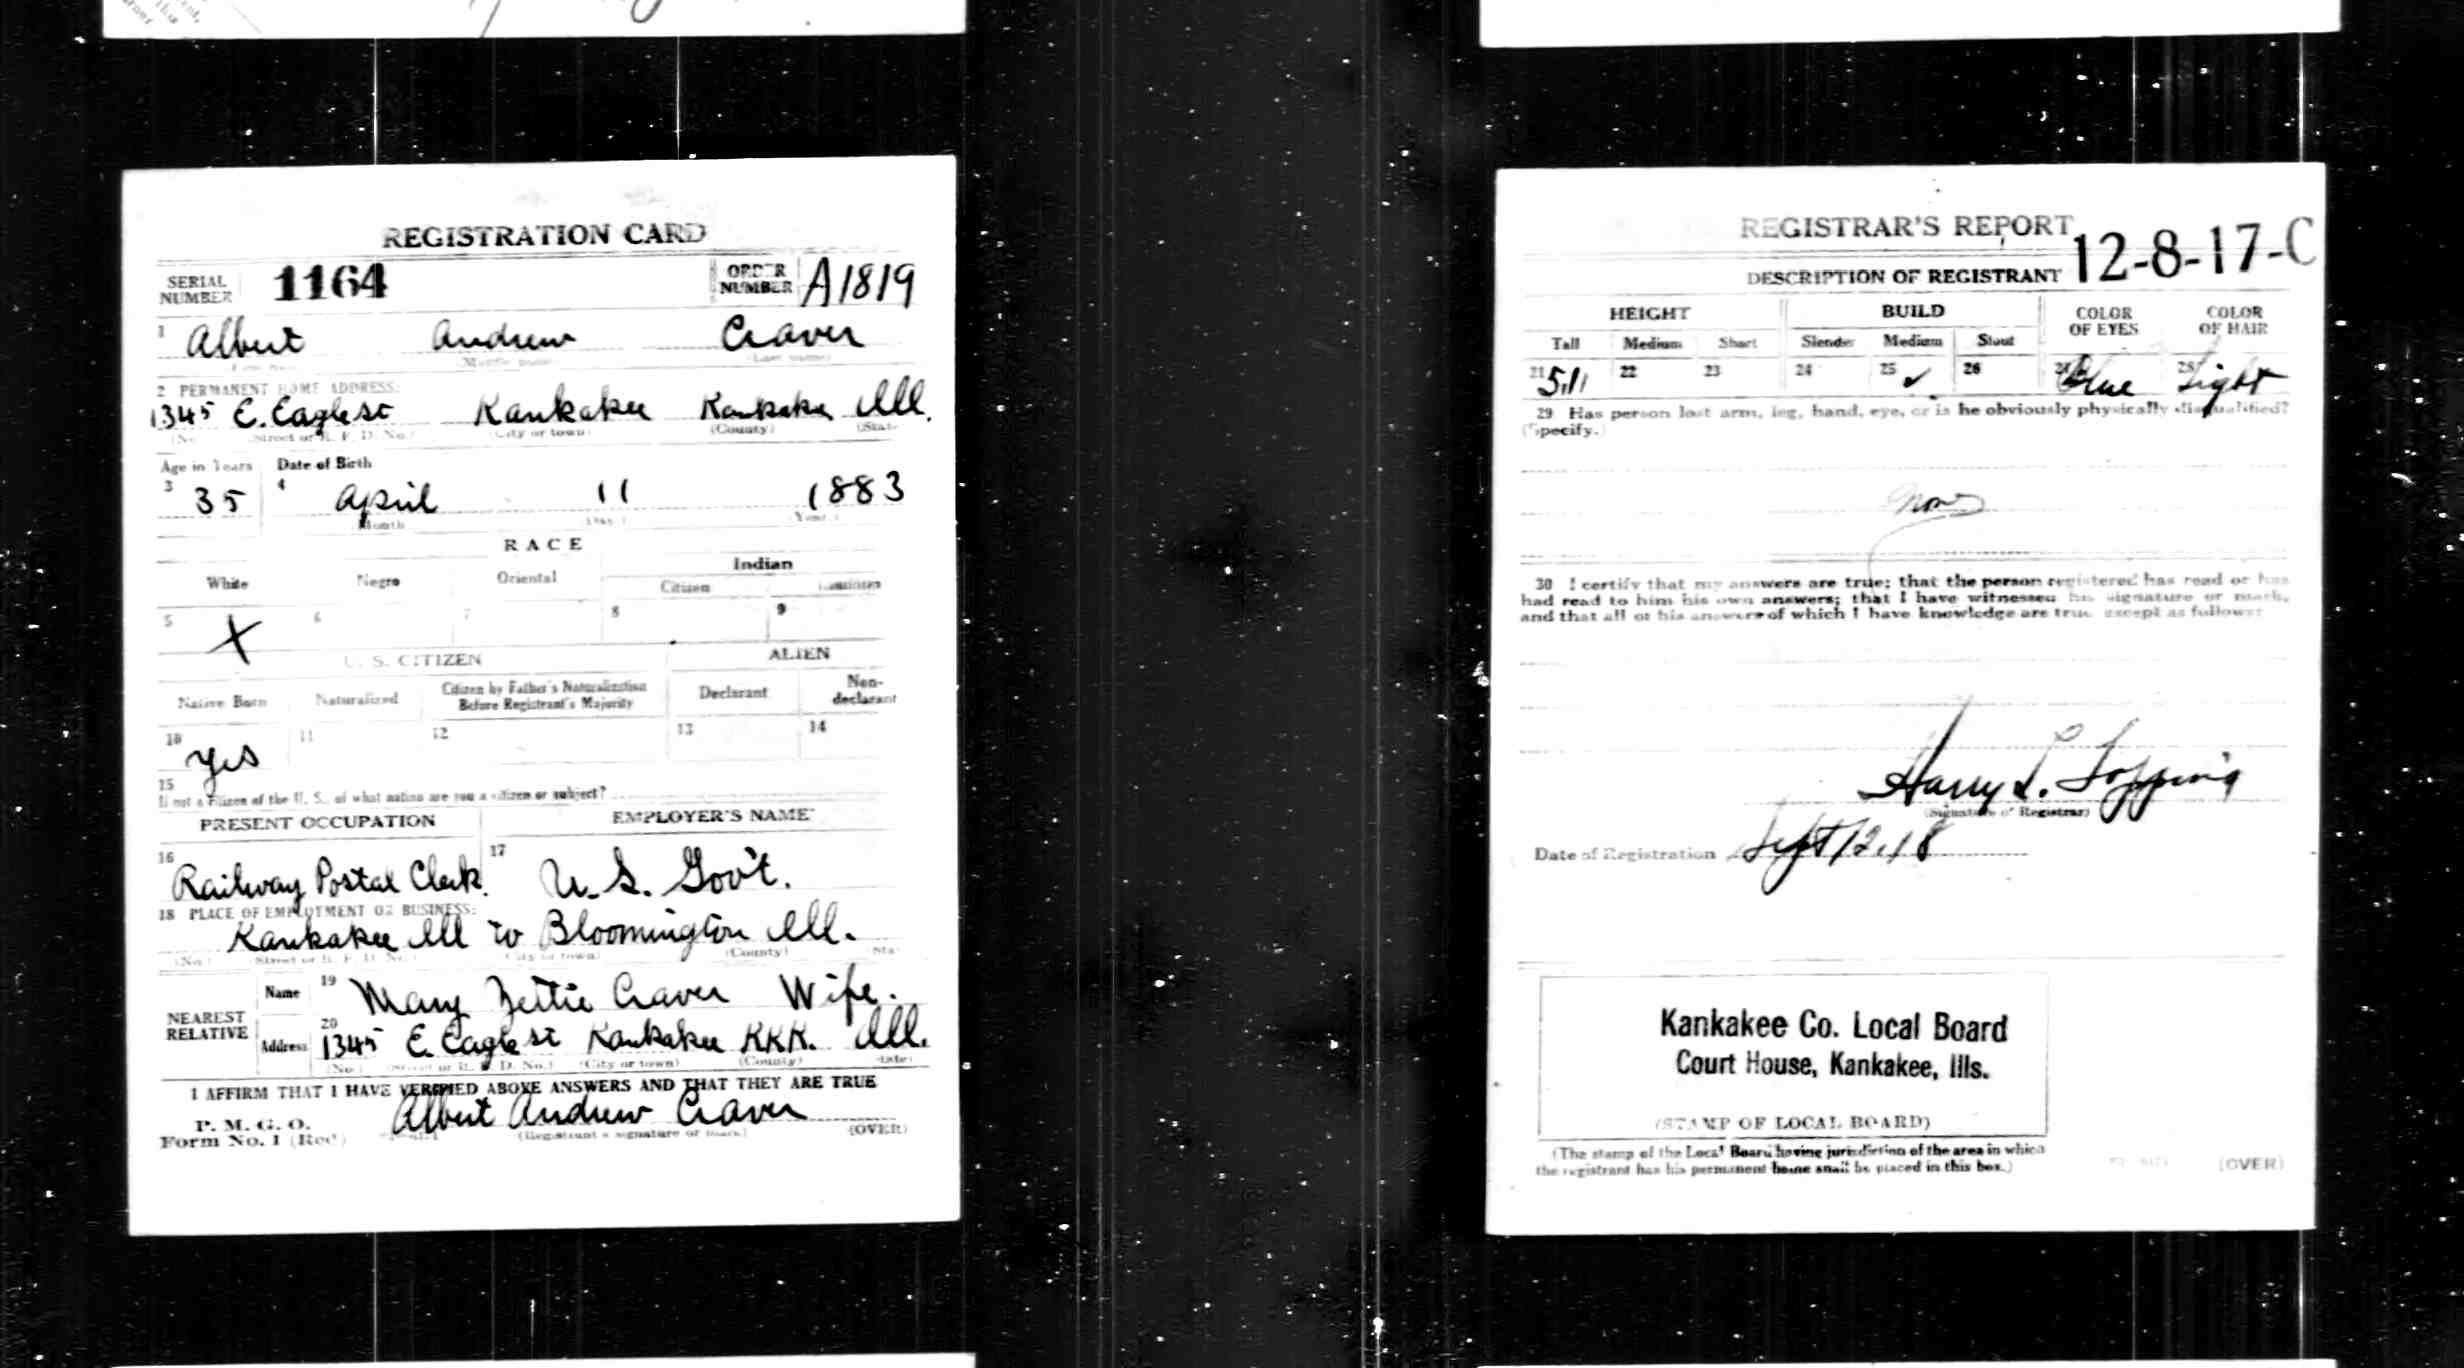 REGISTRATION CARD
SERIAL NUMBER 1164 ORDER NUMBER A1819
1 Albert Andrew Craver
(Last name)
2 PERMANENT HOME ADDRESS:
1345 E. Eagle st Kankakee Kankakee Ill.
(No.) (Street or R. F. D. No.) (City or town) (County) (State)
Age in Years Date of Birth
3 35 4 April 11 1883
Month (Day.) Year.)
RACE
White Negro Oriental Indian
Citizen
5 X 6 7 8 9
U. S. CITIZEN ALIEN
Native Born Naturalized Citizen by Father's Naturalization Before Registrant's Majority Declarant Non-declarant
10 yes 11 12 13 14
15
If not a citizen of the U. S., of what nation are you a citizen or subject?
PRESENT OCCUPATION EMPLOYER'S NAME
16 Railway Postal Clerk. 17 U. S. Gov't.
18 PLACE OF EMPLOYMENT OR BUSINESS:
Kankakee Ill to Bloomington Ill.
(No.) (Street or R. F. D. No.) (City or town) (County) (Sta
NEAREST RELATIVE
Name 19 Mary Zettie Craver Wife.
Address 20 1345 E. Eagle st Kankakee KKK. Ill.
(No.) (Street or R. F. D. No.) (City or town) (County) (State)
I AFFIRM THAT I HAVE VERIFIED ABOVE ANSWERS AND THAT THEY ARE TRUE
P. M. G. O.
Form No. 1 (Red) Albert Andrew Craver
(Registrant's signature or mark) (OVER)
REGISTRAR'S REPORT
12-8-17-C
DESCRIPTION OF REGISTRANT
HEIGHT BUILD COLOR OF EYES COLOR OF HAIR
Tall Medium Short Slender Medium Stout
21 5,11 22 23 24 25 ✓ 26 27 Blue 28 Light
29 Has person lost arm, leg, hand, eye, or is he obviously physically disqualified?
(Specify.)
30 I certify that my answers are true; that the person registered has read or has
had read to him his own answers; that I have witnessed his signature or mark,
and that all of his answers of which I have knowledge are true except as follows:
Harry L. Topping
(Signature of Registrar)
Date of Registration Sept 12, 18
Kankakee Co. Local Board
Court House, Kankakee, Ills.
(STAMP OF LOCAL BOARD)
(The stamp of the Local Board having jurisdiction of the area in which
the registrant has his permanent home shall be placed in this box.)
(OVER)